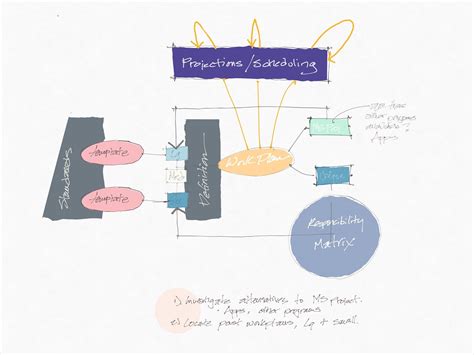 Projections/Scheduling
other programs
Apps
template
Work Plan
Standards
Definition
template
Responsibility
Matrix
1) Investigate alternatives to MS project.
• Apps, other programs
2) Locate past workplans, Lg + small.